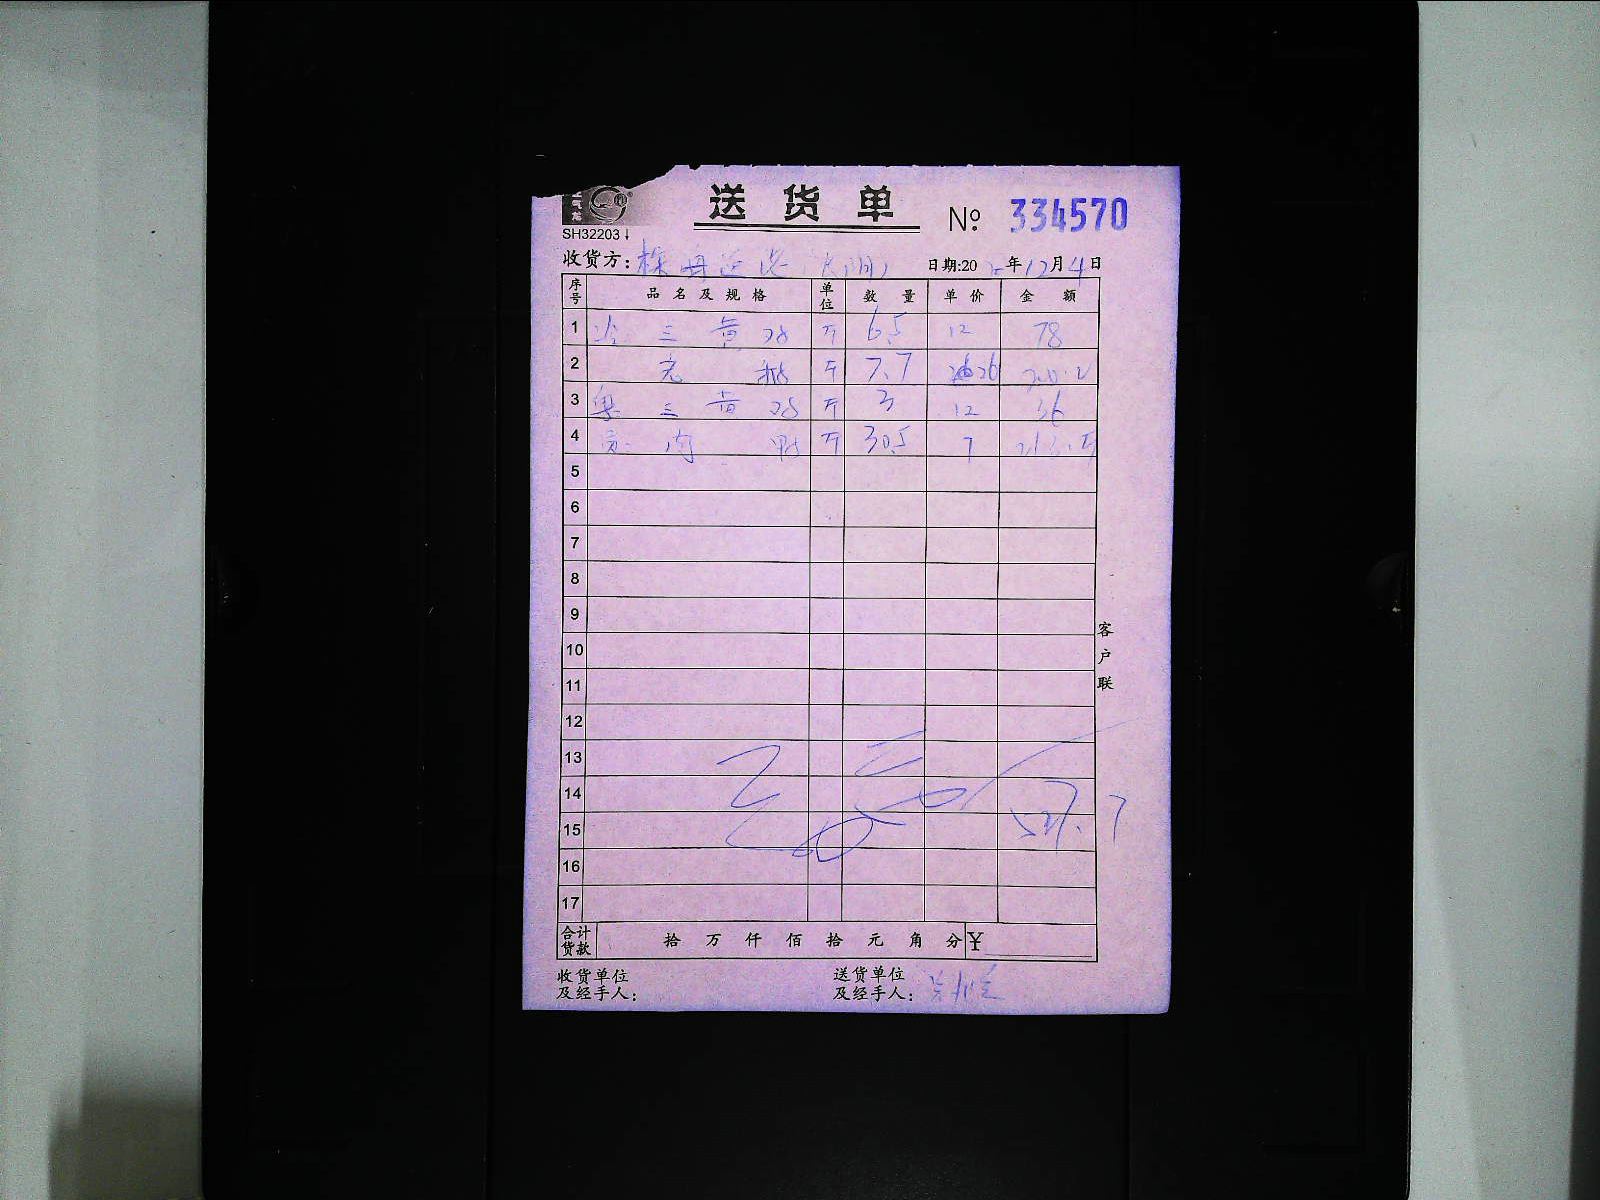 送货单 № 334570
SH32203
收货方：株 日期:20 年12月4日
序号 品名及规格 单位 数量 单价 金额
1 三黄鸡 斤 6.5 12 78
2 老 斤 7.7 26 200.2
3 三黄鸡 斤 3 12 36
4 肉鸭 斤 30.5 7 213.5
5
6
7
8
9
10
11
12
13
14
527.7
15
16
17
合计货款 拾万仟佰拾元角分 ¥
客户联
收货单位及经手人： 送货单位及经手人：